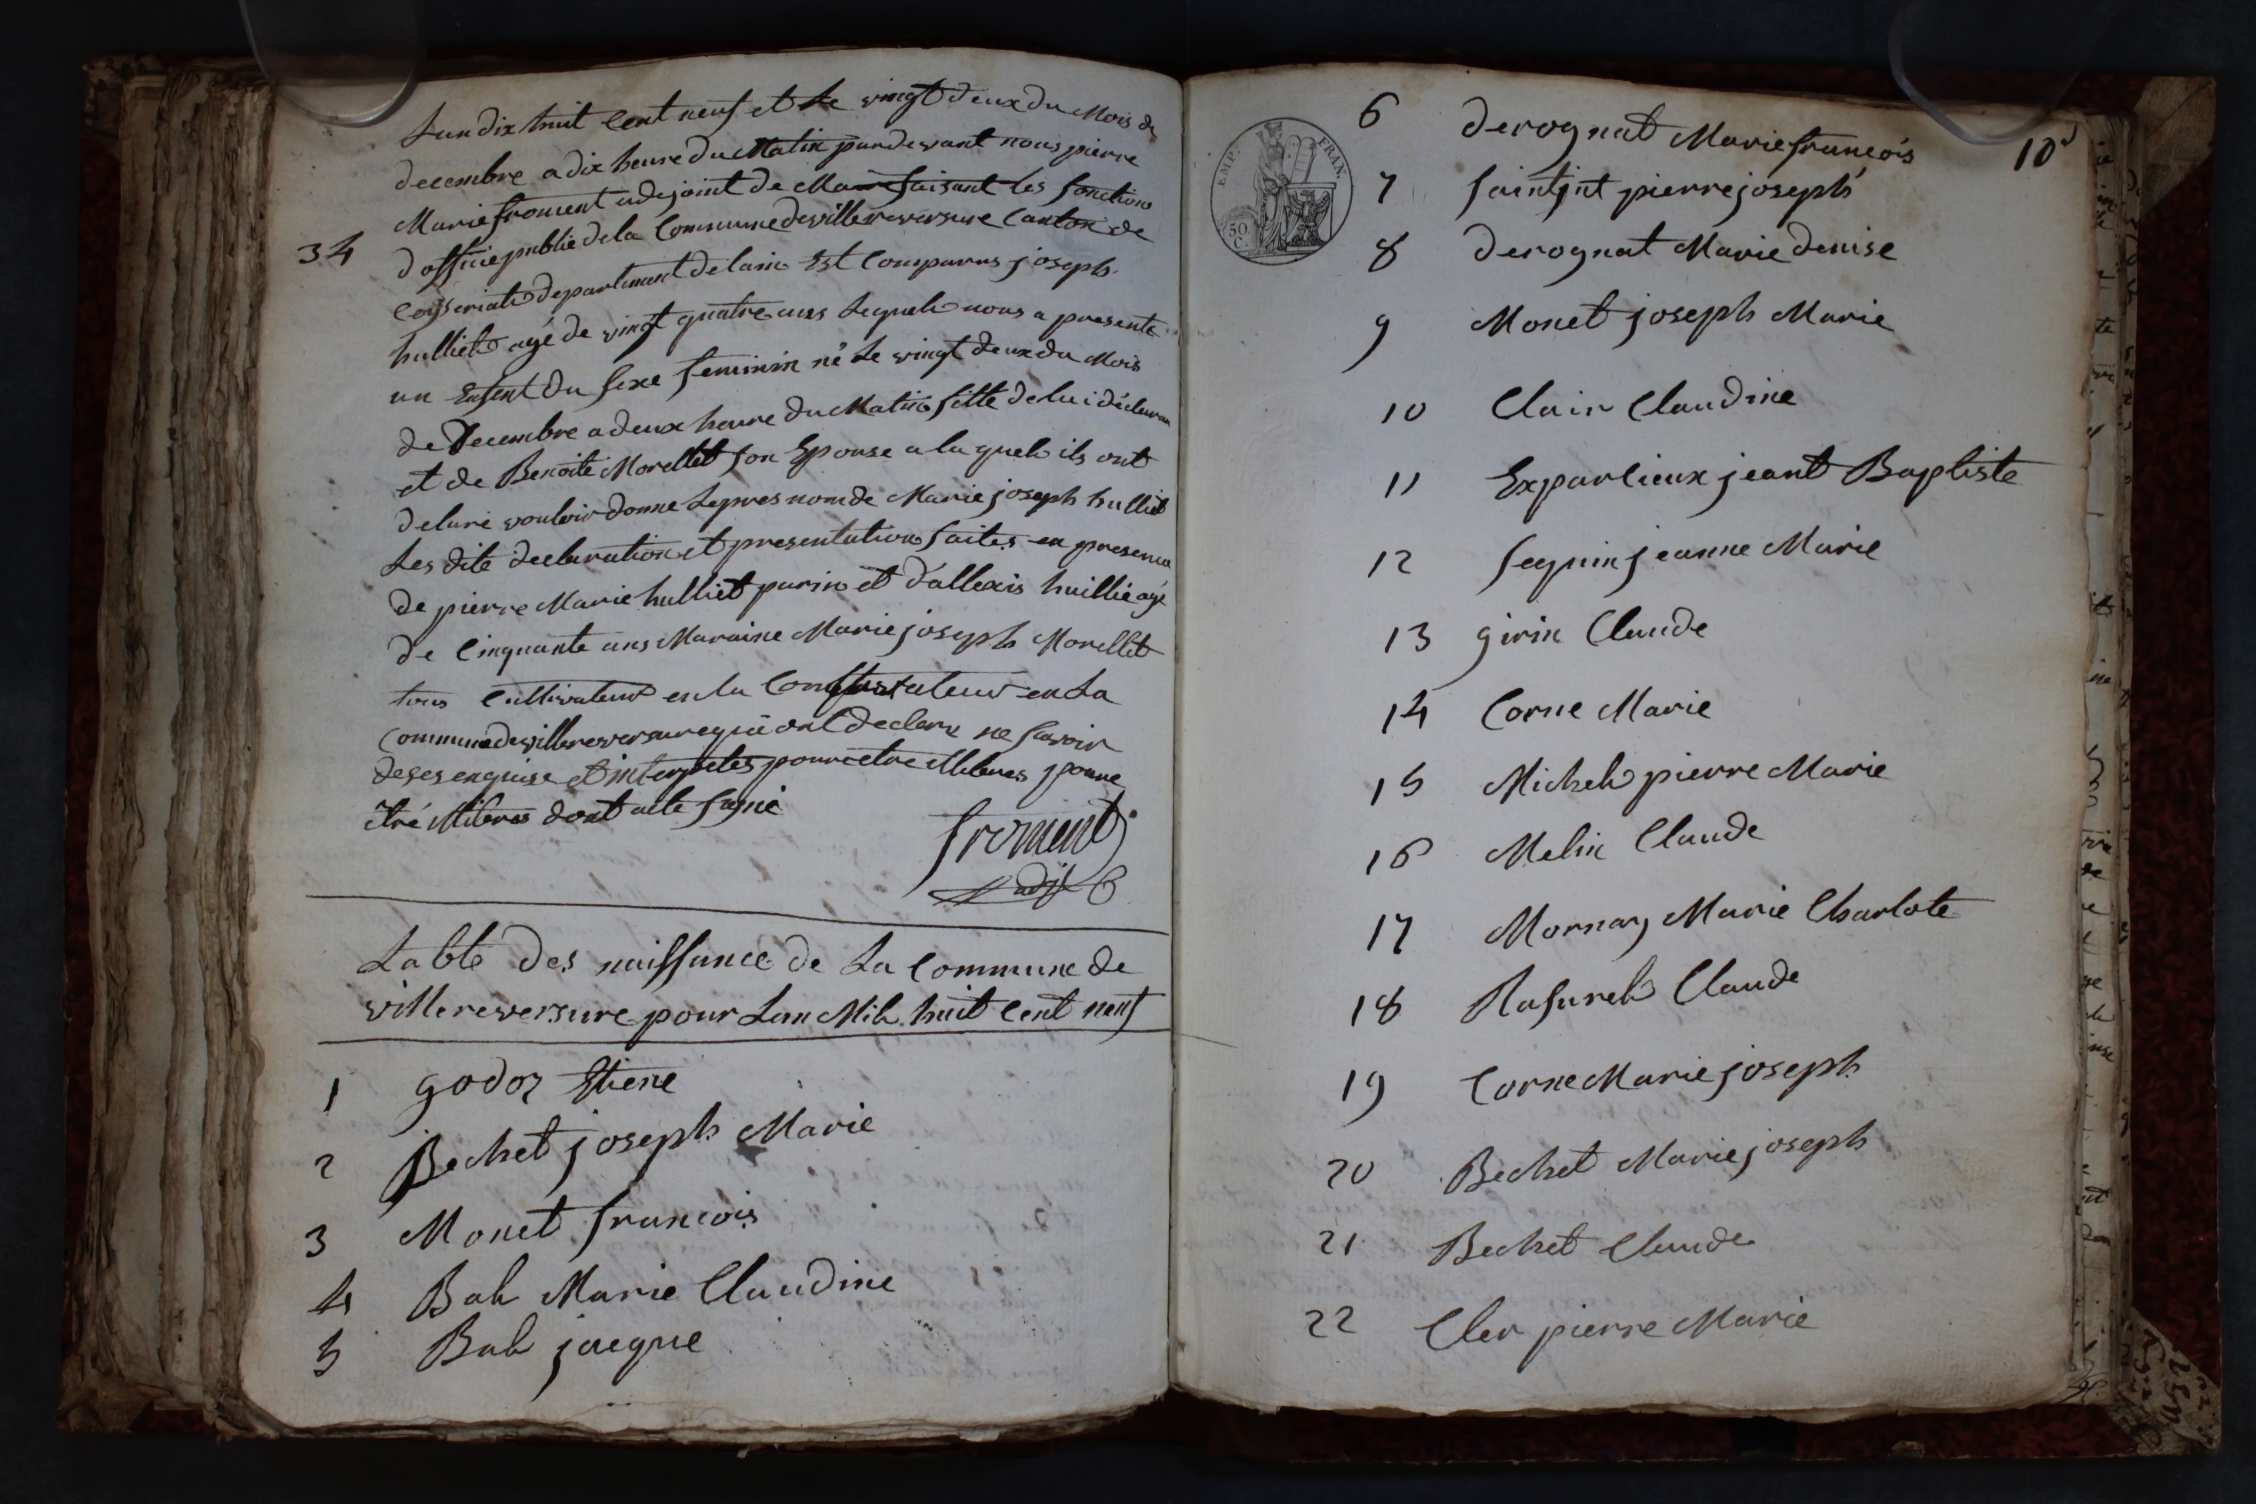 Lan dix huit Cent neuf et Le vingt deux du Mois de
decembre a dix heure du Matin pardevant nous pierre
Marie froment adejoint de Maire faisant les fonction
34
d officie public de la Commune de villereversure Canton de
Ceyseriat departement de lain Est Comparus joseph
hulliet agé de vingt quatre ans Lequel nous a presente
un Enfent du sexe feminin né Le vingt deux du Mois
de Decembre a deux heure du Matin fille de lui déclaran
et de Benoite Morellet son Epouse a la quel ils ont
delaré vouloir donne Lepres nom de Marie joseph hulliet
Les dite declaration et presentation faites en presence
de pierre Marie hulliet parin et d'allexis huillie agé
de Cinquante ans Maraine Marie joseph Morellet
tous Cultivateur en la en La
Commune de villereversure qui ont declaru ne savoir
de ses enquise et pour etre
être dont acte
froment
adjt
table des naissance de La Commune de
villereversure pour Lan Mil huit Cent neuf
1 godoz Etiene
2 Bechet joseph Marie
3 Monet francois
4 Bal Marie Claudine
5 Bal jacque
EMP. FRAN.
50 C.
10
6 derognat Marie francois
7 saintjnt pierre joseph
8 derognat Marie denise
9 Monet joseph Marie
10 Clair Claudine
11 Exparlieux jeant Baptiste
12 seguin jeanne Marie
13 girin Claude
14 Corne Marie
15 Michel pierre Marie
16 Melin Claude
17 Mornay Marie Charlote
18 Rasurel Claude
19 Corne Marie joseph
20 Bechet Marie joseph
21 Bechet Claude
22 Cler pierre Marie